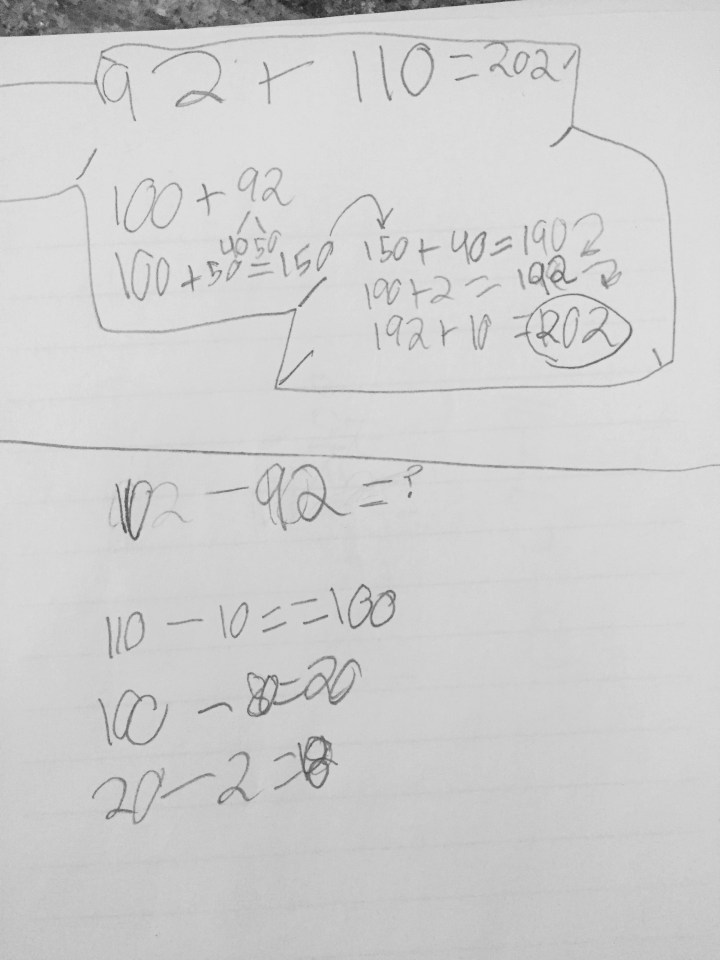 92 + 110 = 202
100 + 92
40 50
100 + 50 = 150
150 + 40 = 190
190 + 2 = 192
192 + 10 = 202
- 92 = ?
110 - 10 = = 100
100 - 80 = 20
20 - 2 =